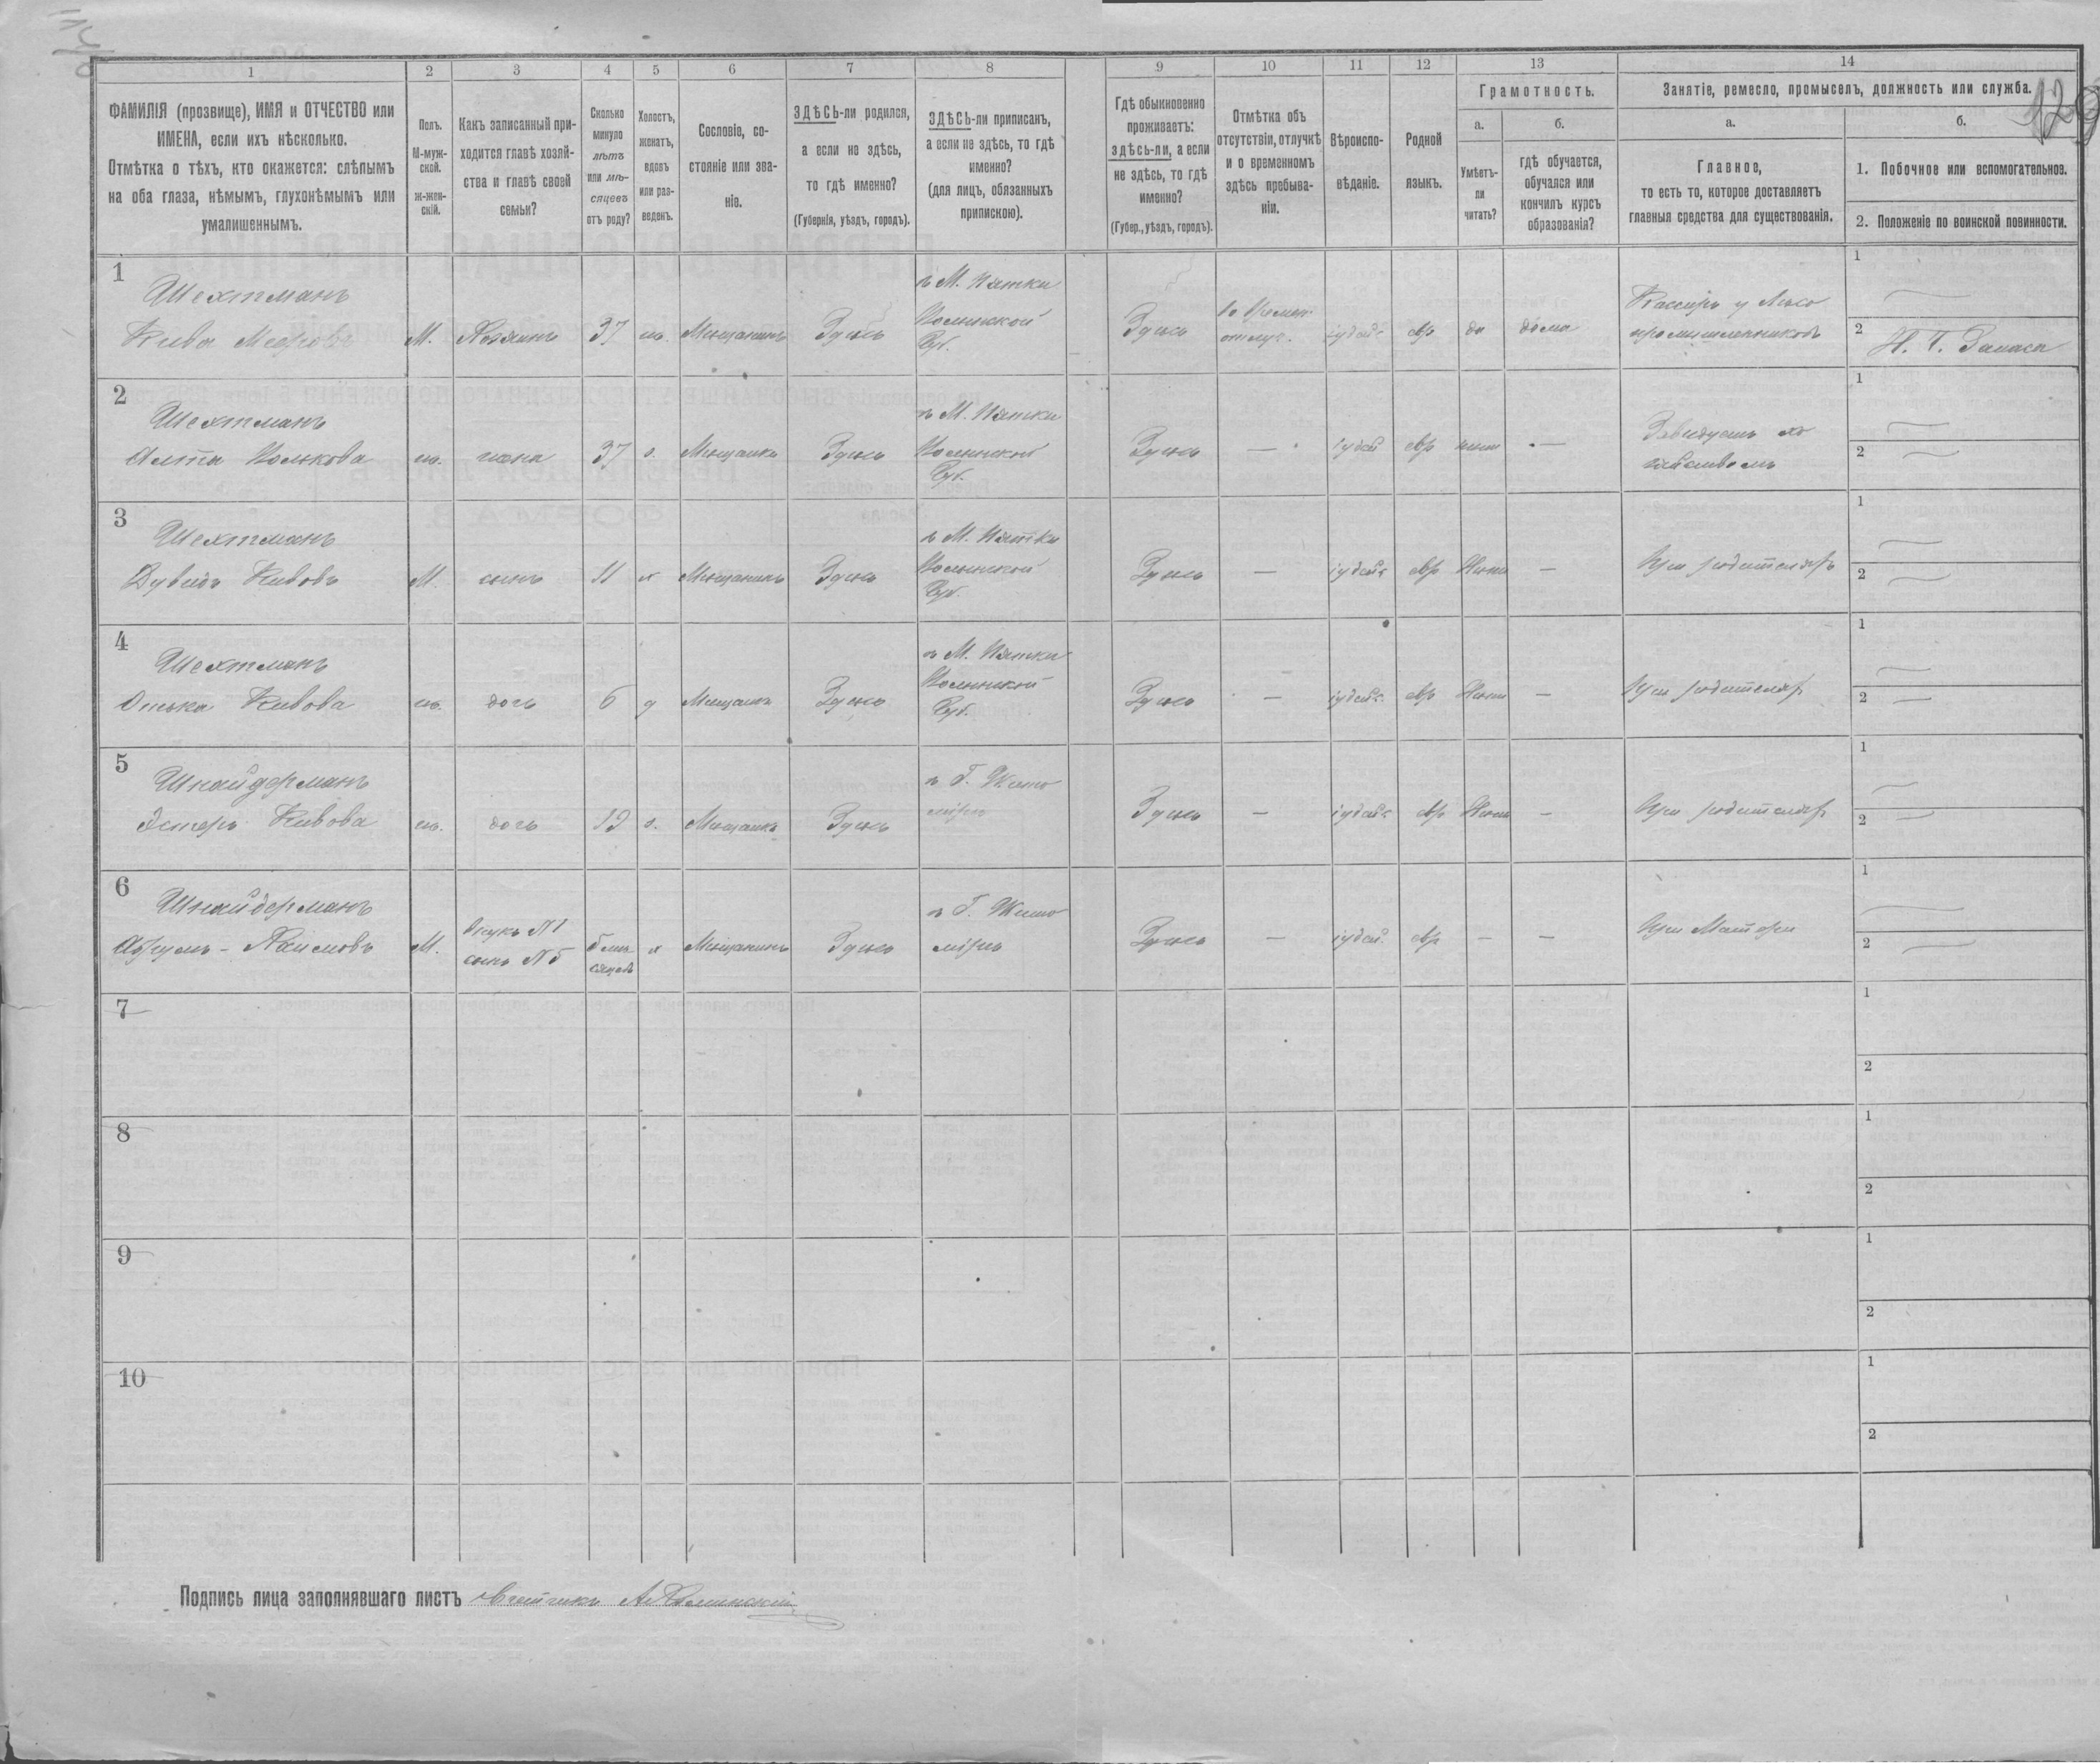 1 2 3 4 5 6 7 8 9 10 11 12 13 14
ФАМИЛІЯ (прозвище), ИМЯ и ОТЧЕСТВО или
ИМЕНА, если ихъ нѣсколько.
Отмѣтка о тѣхъ, кто окажется: слѣпымъ
на оба глаза, нѣмымъ, глухонѣмымъ или
умалишеннымъ.
Полъ.
М-муж-
ской.
ж-жен-
скій.
Какъ записанный при-
ходится главѣ хозяй-
ства и главѣ своей
семьи?
Сколько
минуло
лѣтъ
или мѣ-
сяцевъ
отъ роду?
Холостъ,
женатъ,
вдовъ
или раз-
веденъ.
Сословіе, со-
стояніе или зва-
ніе.
ЗДѢСЬ-ли родился,
а если не здѣсь,
то гдѣ именно?
(Губернія, уѣздъ, городъ).
ЗДѢСЬ-ли приписанъ,
а если не здѣсь, то гдѣ
именно?
(для лицъ, обязанныхъ
припискою).
Гдѣ обыкновенно
проживаетъ:
здѣсь-ли, а если
не здѣсь, то гдѣ
именно?
(Губер., уѣздъ, городъ).
Отмѣтка объ
отсутствіи, отлучкѣ
и о временномъ
здѣсь пребыва-
ніи.
Вѣроиспо-
вѣданіе.
Родной
языкъ.
Грамотность.
а.
Умѣетъ-
ли
читать?
б.
гдѣ обучается,
обучался или
кончилъ курсъ
образованія?
Занятіе, ремесло, промыселъ, должность или служба.
129
а.
Главное,
то есть то, которое доставляетъ
главныя средства для существованія.
б.
1. Побочное или вспомогательное.
2. Положеніе по воинской повинности.
1
Шехтманъ
Кива Мееровъ
М.
Хозяинъ
37
Мѣщанинъ
Здѣсь
въ М. Пятки
Волынской
Губ.
Здѣсь
іудейс.
евр
да
дома
Кассиръ у Лѣсо
промышленниковъ
1
2
2
Шехтманъ
жена
37
з.
Мѣщанка
Здѣсь
въ М. Пятки
Волынской
Губ.
Здѣсь
—
іудей
евр
—
Завѣдуетъ хо
зяйствомъ
1
2
3
Шехтманъ
Дувидъ Кивовъ
М.
сынъ
11
х
Мѣщанинъ
Здѣсь
въ М. Пятки
Волынской
Губ.
Здѣсь
—
іудейс
евр
—
При родителяхъ
1
2
4
Шехтманъ
Кивова
дочь
6
д
Мѣщанка
Здѣсь
въ М. Пятки
Волынской
Губ.
Здѣсь
—
іудейс.
евр
—
При родителях
1
2
5
Шнайдерманъ
Эстеръ Кивова
дочь
19
з.
Мѣщанка
Здѣсь
въ Г. Жито
мірѣ
Здѣсь
—
іудейс
евр
—
При родителях
1
2
6
Шнайдерманъ
М.
Внукъ №1
сынъ №5
мѣ-
сяцевъ
х
Мѣщанинъ
Здѣсь
въ Г. Жито
мірѣ
Здѣсь
—
іудей.
евр
—
—
При Матери
1
2
7
1
2
8
1
2
9
1
2
10
1
2
Подпись лица заполнявшаго листъ